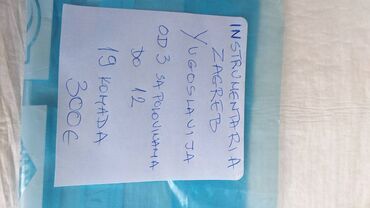 INSTRUMENTARIA
ZAGREB
YUGOSLAVIJA
OD 3 SA POLOVINAMA
DO 12
19 KOMADA
300€